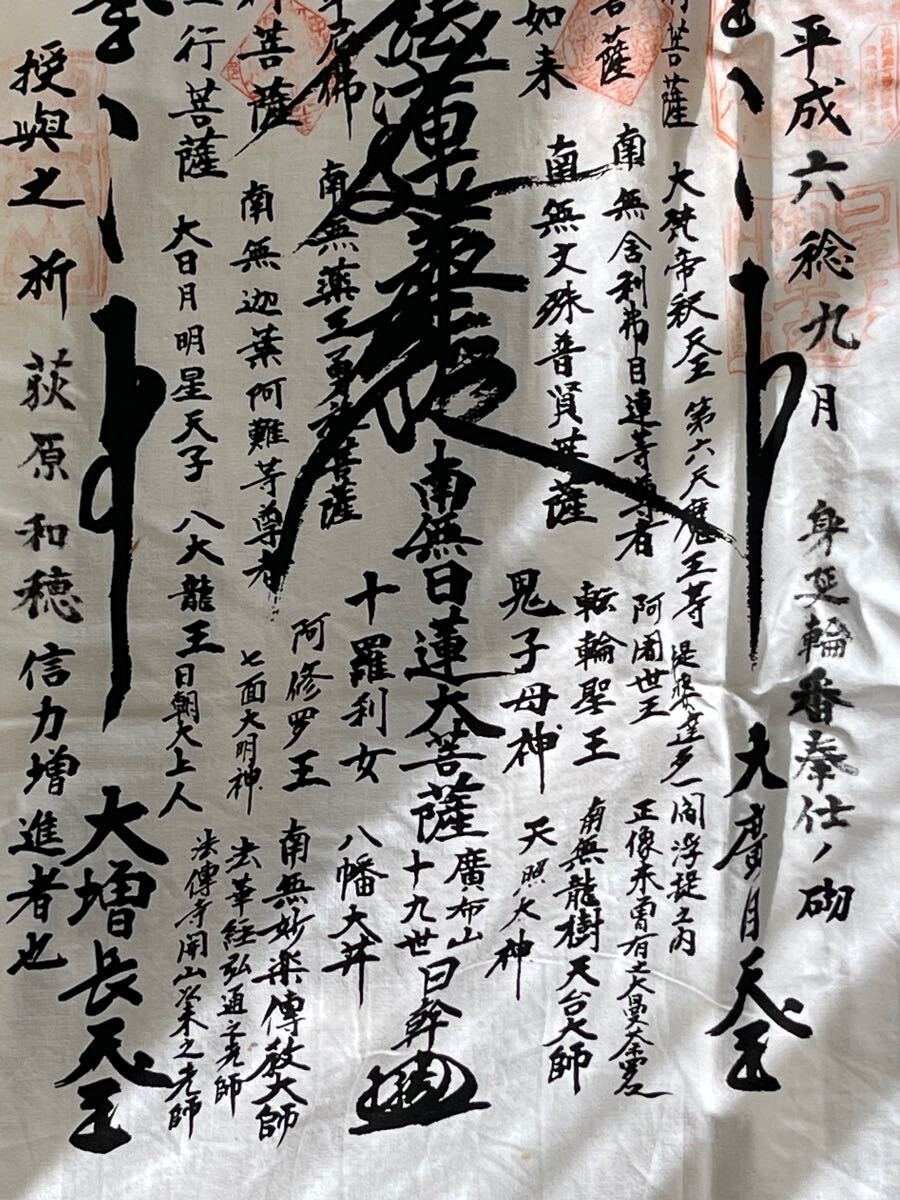 平成六稔九月 身延輪番奉仕ノ砌
大廣目天王
菩薩
大梵帝釈天王 第六天魔王等 提婆達多 閻浮提之内
菩薩
南無舎利弗目連等尊者 阿闍世王 正像未曽有之大曼荼羅
如来
南無文殊普賢菩薩 転輪聖王 南無龍樹天台大師
鬼子母神 天照大神
法蓮華経
南無日蓮大菩薩
廣布山
十九世 日幹
尼佛
南無薬王勇施菩薩 十羅刹女 八幡大菩薩
菩薩
南無迦葉阿難等尊者 阿修羅王 南無妙楽傳教大師
七面大明神 法華経弘通之先師
行菩薩
大日月明星天子 八大龍王 日朝大上人 法傳寺開山以来之先師
大増長天王
授與之 祈 荻原和穂信力増進者也